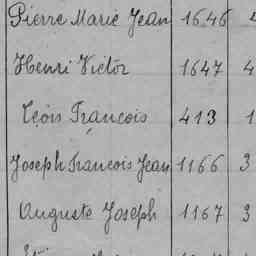 Pierre Marie Jean 1646
Henri Victor 1647 4
François 413 1
Joseph François Jean 1166 3
Auguste Joseph 1167 3